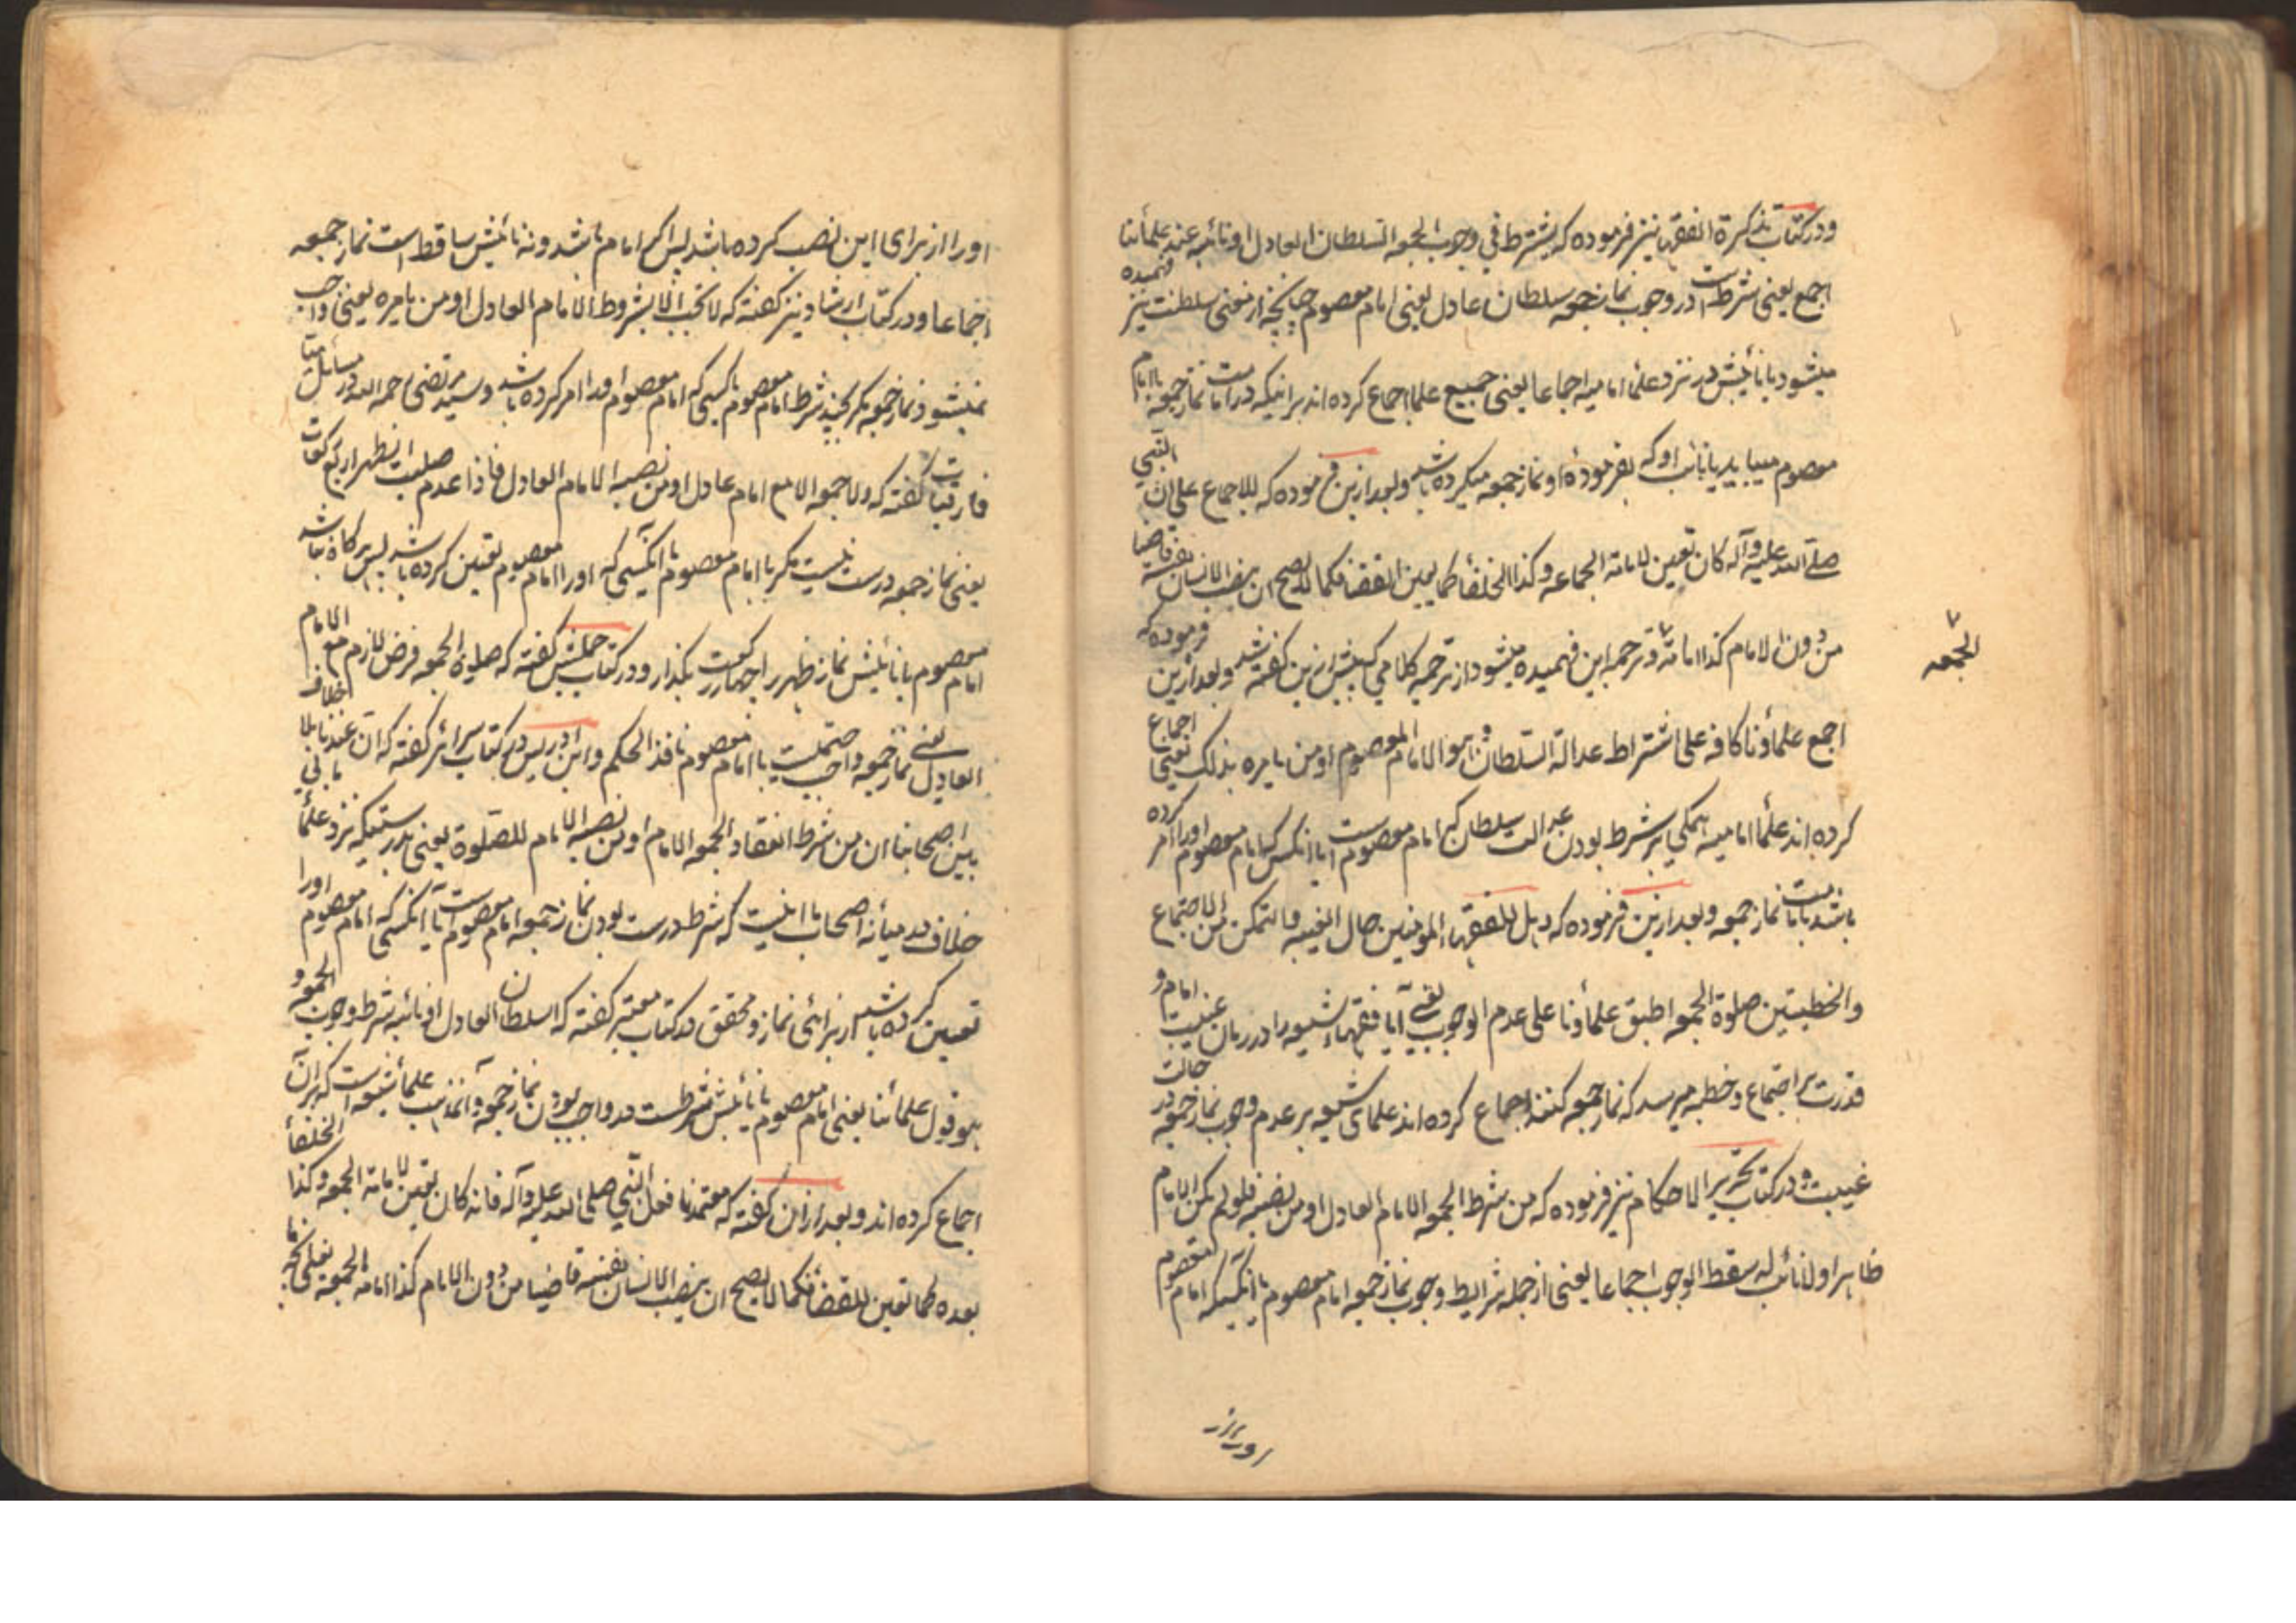 ودر کتاب تذکرة الفقها نیز فرموده که یشترط فی وجوب الجمعه السلطان العادل او نائبه عند علمائنا
اجمع یعنی شرطست در وجوب نماز جمعه سلطان عادل یعنی امام معصوم چنانچه از معنی سلطنت نیز فهمیده
میشود یا نائبش در نزد علماء امامیه اجماعا یعنی جمیع علما اجماع کرده اند بر اینکه در امامت نماز جمعه یا امام
معصوم میباید یا نائب او که بفرمودهٔ او نماز جمعه میکرده باشد وبعد ازین فرموده که للاجماع علی ان النبی
صلی الله علیه وآله کان یعین لامامة الجماعه وکذا الخلفا کما یعین القضا فکما لا یصح ان ینصب الانسان نفسه قاضیا
من دون الامام کذا امامة و ترجمه این فهمیده میشود از ترجمه کلامی که پیش ازین گفته شد وبعد ازین فرموده که
الجمعه
اجمع علماؤنا کافه علی اشتراط عدالة السلطان وهو الامام المعصوم او من یامره بذلک یعنی اجماع
کرده اند علماء امامیه همگی بر شرط بودن عدالت سلطان که امام معصومست یا انکس که امام معصوم اورا امر کرده
باشد بامامت نماز جمعه وبعد ازین فرموده که وهل للفقهاء المومنین حال الغیبه والتمکن من الاجتماع
والخطبتین صلوة الجمعه اطبق علماؤنا علی عدم الوجوب یعنی آیا فقهاء شیعه را در زمان غیبت امام و
قدرت بر اجتماع وخطبه میرسد که نماز جمعه کنند اجماع کرده اند علمای شیعه بر عدم وجوب نماز جمعه در حالت
غیبت و در کتاب تحریر الاحکام نیز فرموده که من شرط الجمعه الامام العادل او من نصبه فلو لم یکن الامام
ظاهرا ولا نائب له سقط الوجوب اجماعا یعنی از جمله شرایط وجوب نماز جمعه امام معصوم یا آنکسیکه امام معصوم
اورا از برای این نصب کرده باشد پس اگر امام نباشد ونه نائبش ساقط است نماز جمعه
اجماعا ودر کتاب ارشاد نیز گفته که لا تجب الا بشروط الامام العادل او من یامره یعنی واجب
نمیشود نماز جمعه مگر بچند شرط امام معصوم یا کسی که امام معصوم اورا امر کرده باشد وسید مرتضی رحمه الله در مسائل
گفته که ولا جمعه الا مع امام عادل او من نصبه الامام العادل فاذا عدم صلیت الظهر اربع رکعات
یعنی نماز جمعه درست نیست مگر با امام معصوم یا آنکسی که اورا امام معصوم تعین کرده باشد پس هرگاه نباشد
امام معصوم یا نائبش نماز ظهر را چهار رکعت بگذار ودر کتاب جملش گفته که صلوة الجمعه فرض لازم مع الامام
العادل یعنی نماز جمعه واجب حتمیست با امام معصوم نافذ الحکم وابن ادریس در کتاب سرائر گفته که ان عندنا بلا خلاف
بین اصحابنا ان من شرط انعقاد الجمعه الامام او من نصبه الامام للصلوة یعنی بدرستیکه نزد علماء
خلاف در میانه اصحاب ما نیست که شرط درست بودن نماز جمعه امام معصومست یا آنکسی که امام معصوم اورا
تعین کرده باشد از برای نماز ومحقق در کتاب معتبر گفته که السلطان العادل او نائبه شرط وجوب الجمعه و
هو قول علمائنا یعنی امام معصوم یا نائبش شرطست در واجب بودن نماز جمعه و آن مذهب علماء شیعه است که بر آن
اجماع کرده اند وبعد از آن گفته که معتمدنا فعل النبی صلی الله علیه وآله فانه کان یعین لامامة الجمعه وکذا الخلفا
بعده کما تعین للقضا فکما لا یصح ان ینصب الانسان نفسه قاضیا من دون الامام کذا امامه الجمعه یعنی